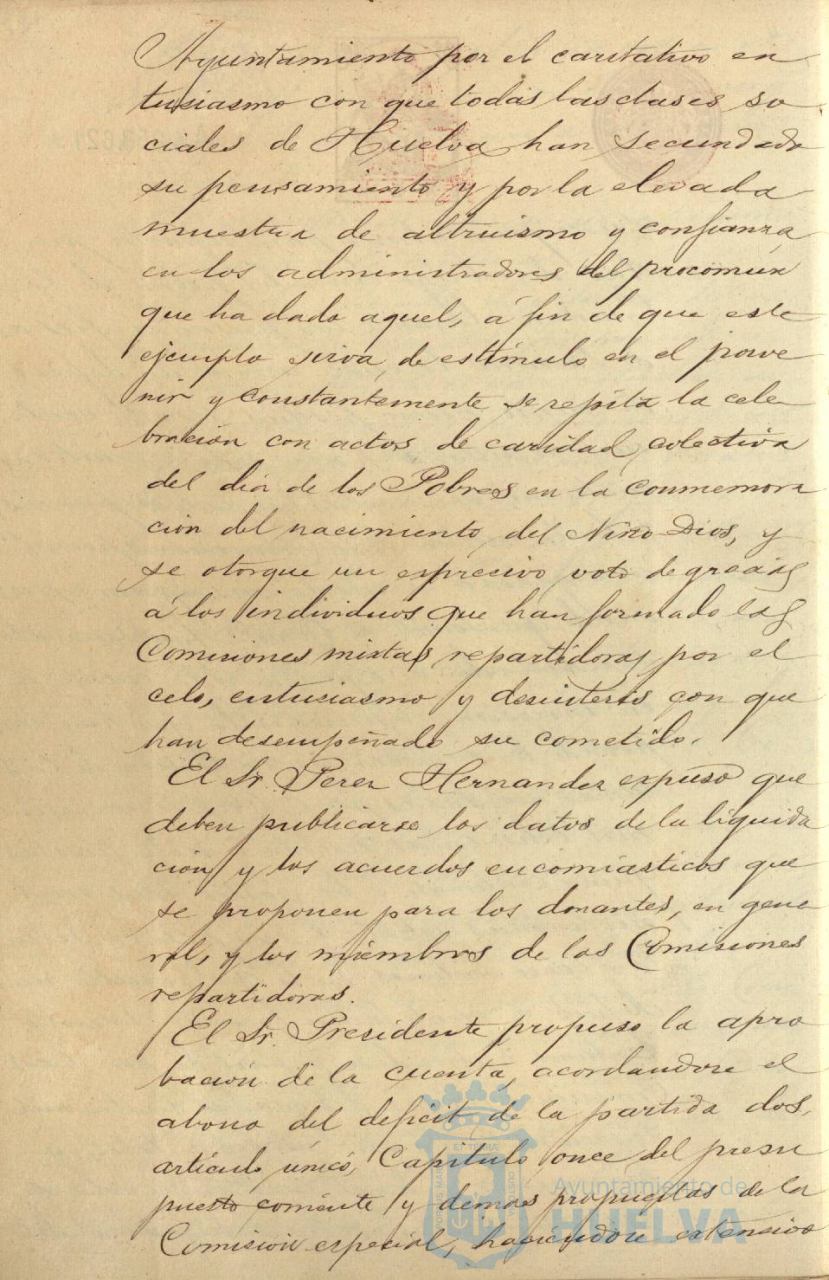 Ayuntamiento por el caritativo en
tusiasmo con que todas las clases so
ciales de Huelva han secundado
su pensamiento y por la elevada
muestra de altruismo y confianza
en los administradores del procomún
que ha dado aquel, á fin de que este
ejemplo sirva de estímulo en el porve
nir y constantemente se repita la cele
bración con actos de caridad colectiva
del día de los Pobres en la conmemora
ción del nacimiento del Niño Dios, y
se otorgue un expresivo voto de gracias
á los individuos que han formado las
Comisiones mixtas repartidoras por el
celo, entusiasmo y desinterés con que
han desempeñado su cometido.
El Sr. Perez Hernandez expuso que
deben publicarse los datos de la liquida
ción y los acuerdos encomiásticos que
se proponen para los donantes, en gene
ral, y los miembros de las Comisiones
repartidoras.
El Sr. Presidente propuso la apro
bación de la cuenta, acordandose el
abono del deficit de la partida dos,
artículo único, Capítulo once del presu
puesto corriente y demas propuestas de la
Comisión especial, haciéndose extensivo
Ayuntamiento de
HUELVA